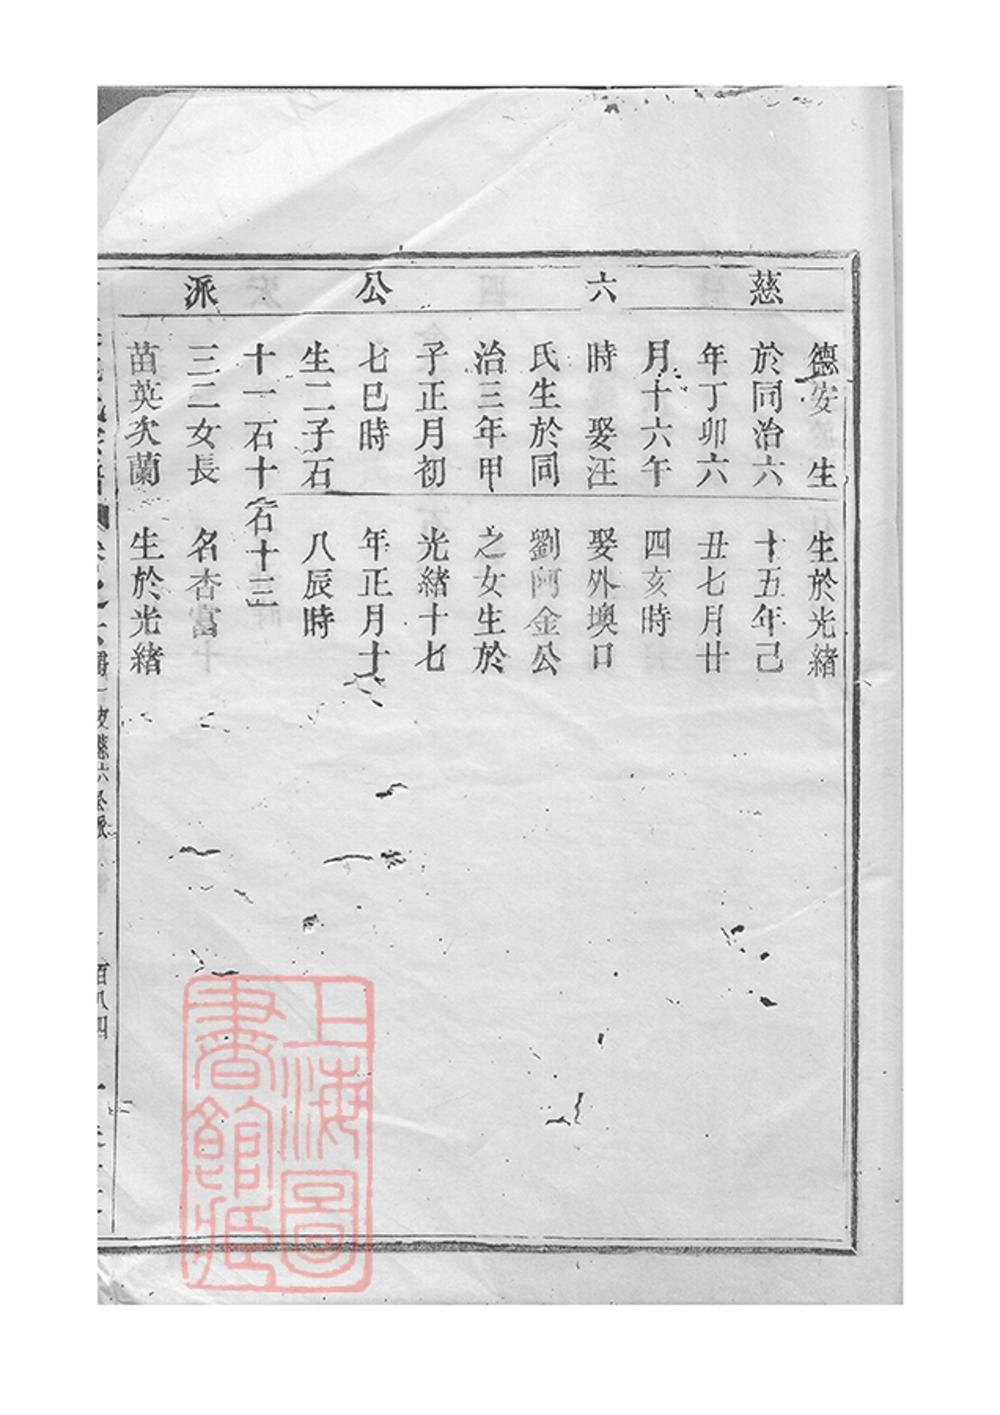 慈六公派
德安 生
於同治六
年丁卯六
月十六午
時 娶汪
氏生於同
治三年甲
子正月初
七巳時
生二子石
十一石十
三二女長
苗英次蘭
生於光緒
十五年己
丑七月廿
四亥時
娶外墺口
劉阿金公
之女生於
光緒十七
年正月十
八辰時
石十三
名杏富十
生於光緒
慈六公派
百八四
上海圖書館藏